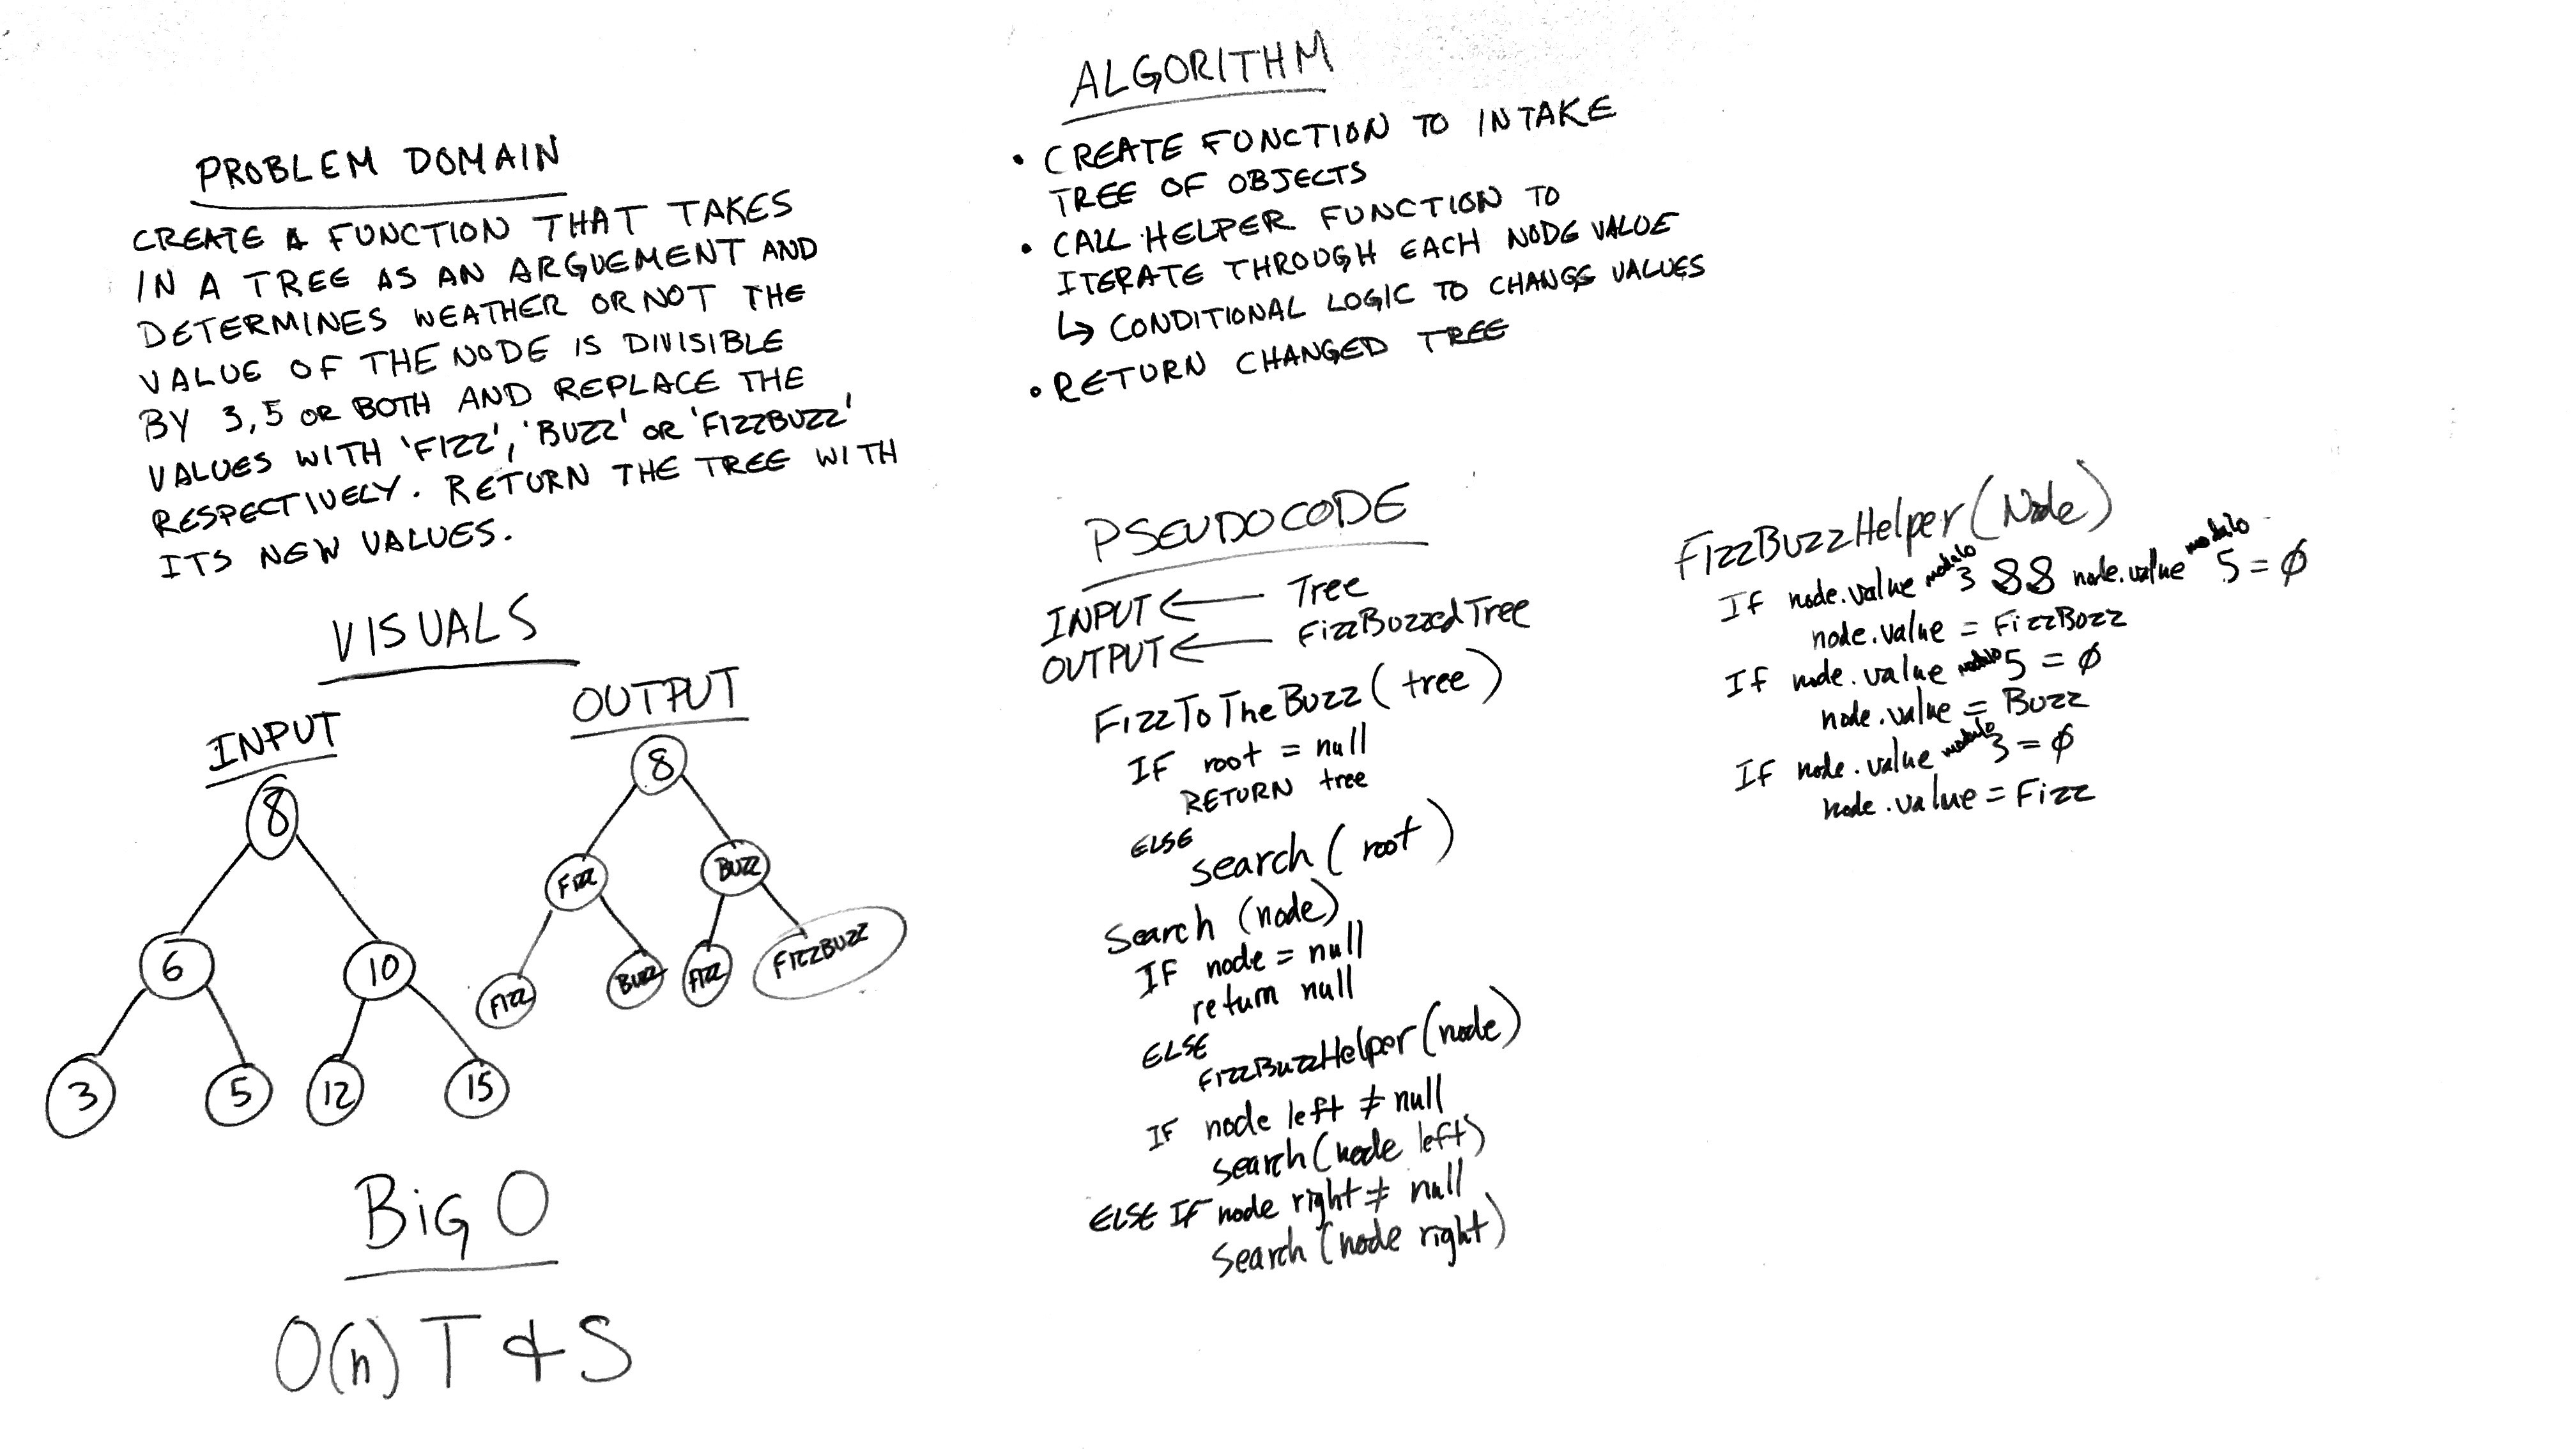 PROBLEM DOMAIN
CREATE A FUNCTION THAT TAKES
IN A TREE AS AN ARGUEMENT AND
DETERMINES WEATHER OR NOT THE
VALUE OF THE NODE IS DIVISIBLE
BY 3,5 OR BOTH AND REPLACE THE
VALUES WITH 'FIZZ', 'BUZZ' OR 'FIZZBUZZ'
RESPECTIVELY. RETURN THE TREE WITH
ITS NEW VALUES.
VISUALS
INPUT
8
6 10
3 5 12 15
OUTPUT
8
FIZZ BUZZ
FIZZ BUZZ FIZZ FIZZBUZZ
BIG O
O(n) T & S
ALGORITHM
• CREATE FUNCTION TO INTAKE
TREE OF OBJECTS
• CALL HELPER FUNCTION TO
ITERATE THROUGH EACH NODE VALUE
↳ CONDITIONAL LOGIC TO CHANGE VALUES
• RETURN CHANGED TREE
PSEUDOCODE
INPUT ← Tree
OUTPUT ← FizzBuzzedTree
FizzToTheBuzz(tree)
IF root = null
RETURN tree
ELSE
search(root)
Search (node)
IF node = null
return null
ELSE
FizzBuzzHelper(node)
IF node left ≠ null
search(node left)
ELSE IF node right ≠ null
Search (node right)
FizzBuzzHelper(Node)
If node.value modulo 3 && node.value modulo 5 = ∅
node.value = FizzBuzz
If node.value modulo 5 = ∅
node.value = Buzz
If node.value modulo 3 = ∅
node.value = Fizz